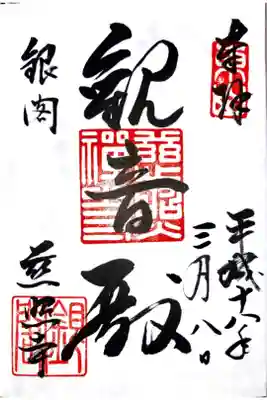 奉拝
平成十八年
三月八日
觀音殿
銀閣
慈照寺